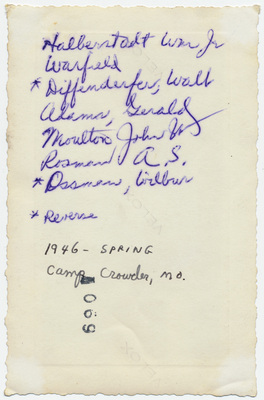 Halberstadt Wm Jr
Warfield
* Diffenderfer, Walt
Adams, Gerald
Moulton John W
Rosman A. S.
* Ossman, Wilbur
* Reverse
1946 - SPRING
Camp Crowder, MO.